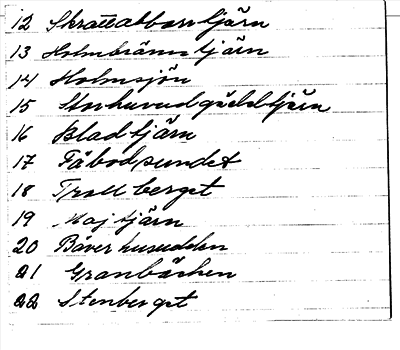 12 Skrattabborrtjärn
13 Holmbrännstjärn
14 Holmsjön
15 Storhuvudgäddtjärn
16 Bladtjärn
17 Fäbodsundet
18 Trollberget
19 Majtjärn
20 Bäverhusudden
21 Granbäcken
22 Stenberget